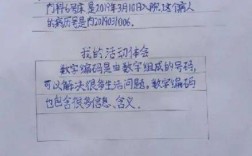 内科6号床是2019年3月18日入院,这个病人
的病历号是内201903|006.
我的活动体会
数字编码是由数字组成的号码,
可以解决很多生活问题。数字编码
也包含很多信息、含义.